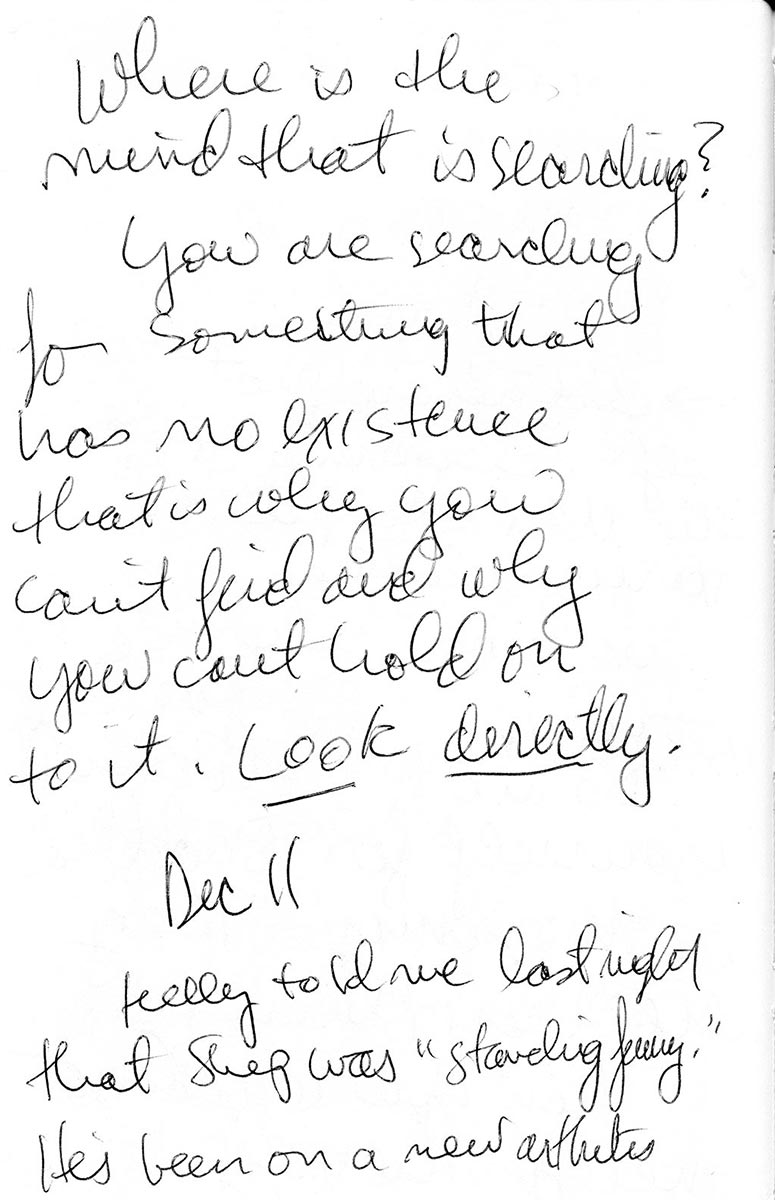 Where is the
mind that is searching?
You are searching
for something that
has no existence
that is why you
can't find and why
you cant hold on
to it. Look directly.
Dec 11
Kelly told me last night
that Shep was "standing funny."
He's been on a new arthritis